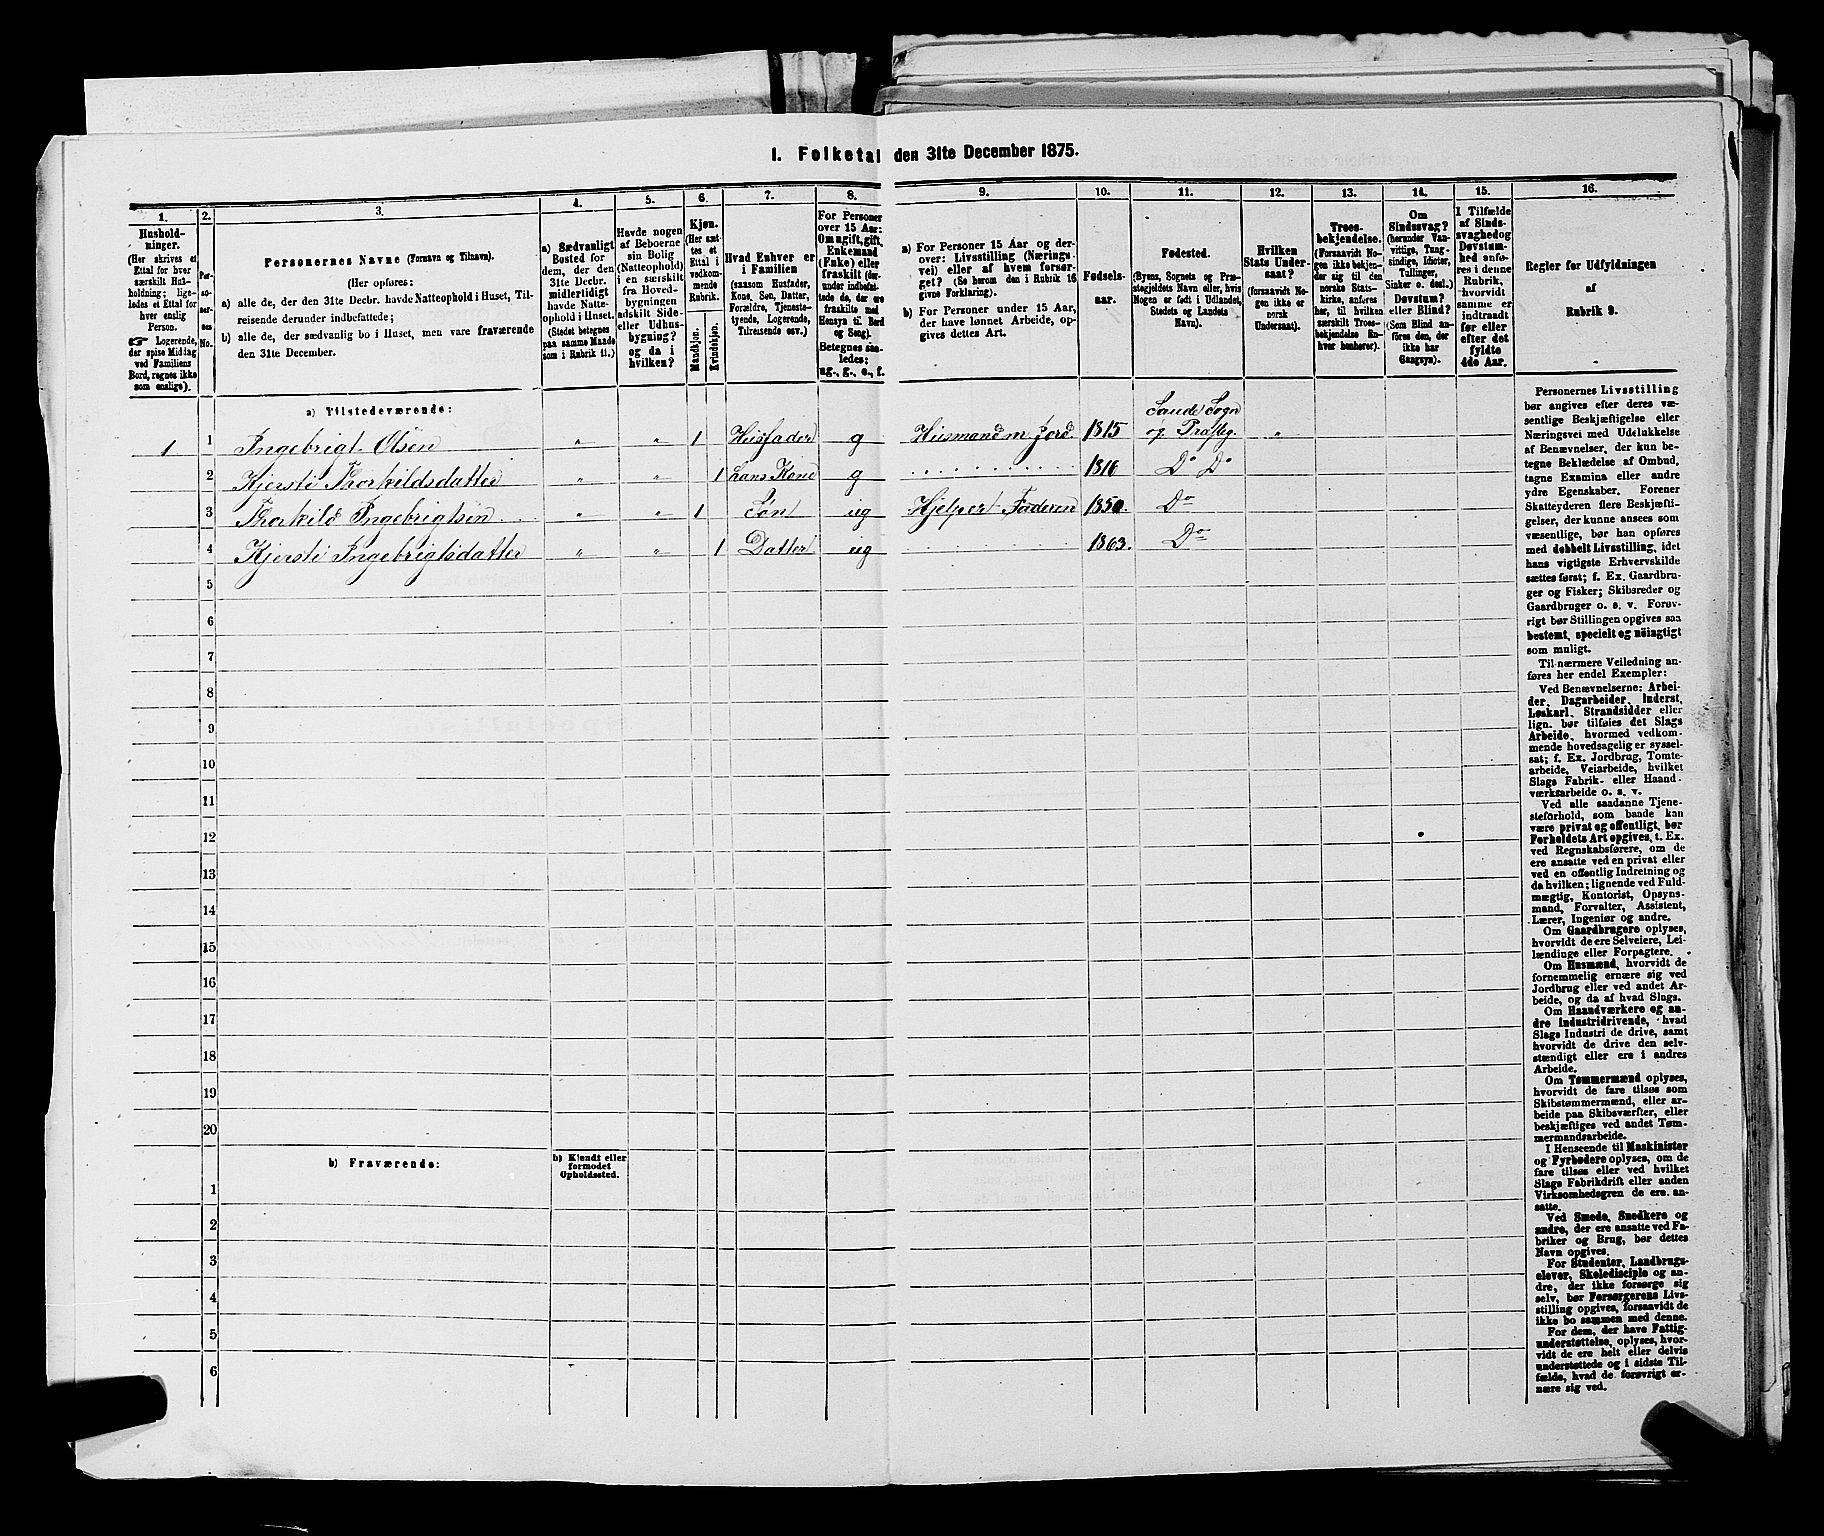 I. Folketal den 31te December 1875.
1. 2. 3. 4. 5. 6. 7. 8. 9. 10. 11. 12. 13. 14. 15. 16.
Husholdninger.
(Her skrives et
Ettal for hver
særskilt Husholdning; ligeledes et Ettal for
hver enslig
Person.
☞ Logerende,
der spise Middag
ved Familiens
Bord, regnes ikke
som enslige).
Personernes No.
Personernes Navne (Fornavn og Tilnavn).
(Her opføres:
a) alle de, der den 31te Decbr. havde Natteophold i Huset, Tilreisende derunder indbefattede;
b) alle de, der sædvanlig bo i Huset, men vare fraværende
den 31te December.
a) Sædvanligt
Bosted for
dem, der den
31te Decbr.
midlertidigt
havde Natteophold i Huset.
(Stedet betegnes
paa samme Maade
som i Rubrik 11.)
Havde nogen
af Beboerne
sin Bolig
(Natteophold)
i en særskilt
fra Hovedbygningen
adskilt Side- eller Udhusbygning?
og da i
hvilken?
Kjøn.
(Her sættes et
Ettal i
vedkommende
Rubrik.
Mandkjøn.
Kvindekjøn.
Hvad Enhver er
i Familien
(saasom Husfader,
Kone, Søn, Datter,
Forældre, Tjenestetyende, Logerende,
Tilreisende osv.)
For Personer
over 15 Aar:
Om ugift, gift,
Enkemand
(Enke) eller
fraskilt (derunder indbefattede de, der ere
fraskilte med
Hensyn til Bord
og Seng).
Betegnes saaledes:
ug., g., e., f.
a) For Personer 15 Aar og derover: Livsstilling (Næringsvei) eller af hvem forsørget? (Se herom den i Rubrik 16
givne Forklaring).
b) For Personer under 15 Aar,
der have lønnet Arbeide, opgives dettes Art.
Fødselsaar.
Fødested.
(Byens, Sognets og Præstegjeldets Navn eller, hvis
Nogen er født i Udlandet,
Stedets og Landets
Navn).
Hvilken
Stats Undersaat?
(forsaavidt Nogen ikke er
norsk
Undersaat).
Troesbekjendelse.
(Forsaavidt Nogen ikke bekjender sig til den
norske Statskirke, anføres
her, til hvilken
særskilt Troesbekjendelse Enhver henhører).
Om
Sindssvag?
(herunder Vanvittige, Tungsindige, Idioter,
Tullinger,
Sinker o. desl.)
Døvstum?
eller Blind?
(Som Blind anføres den, der
ikke har
Gangsyn).
I Tilfælde
af Sindssvaghed og
Døvstumhed anføres i denne
Rubrik,
hvorvidt
samme er
indtraadt
før eller
efter det
fyldte
4de Aar.
Regler for Udfyldningen
af
Rubrik 9.
a) Tilstedeværende:
1 1 Ingebrigt Olsen " " 1 Husfader g Husmand m Jord. 1815 Sande Sogn
og Præsteg. "
2 Kjersti Thorkildsdatter " " 1 hans Kone g 1816 Do Do
3 Thorkild Ingebrigtsen " " 1 Søn ug Hjelper Faderen 1850. Do
4 Kjersti Ingebrigtsdatter " " 1 Datter ug 1863. Do
5
6
7
8
9
10
11
12
13
14
15
16
17
18
19
20
b) Fraværende:
b) Kjendt eller
formodet
Opholdssted.
1
2
3
4
5
6
Personernes Livsstilling
bør angives efter deres væsentlige Beskjæftigelse eller
Næringsvei med Udelukkelse
af Benævnelser, der kun betegne Beklædelse af Ombud,
tagne Examina eller andre
ydre Egenskaber. Forener
Skatteyderen flere Beskjæftigelser, der kunne ansees som
væsentlige, bør han opføres
med dobbelt Livsstilling, idet
hans vigtigste Erhvervskilde
sættes først; f. Ex. Gaardbruger og Fisker; Skibsreder og
Gaardbruger o. s. v. Forøvrigt bør Stillingen opgives saa
bestemt, specielt og nöiagtigt
som muligt.
Til nærmere Veiledning anføres her endel Exempler:
Ved Benævnelserne: Arbeider, Dagarbeider, Inderst,
Løskarl, Strandsidder eller
lign. bør tilføies det Slags
Arbeide, hvormed vedkommende hovedsagelig er sysselsat; f. Ex. Jordbrug, Tomtearbeide, Veiarbeide, hvilket
Slags Fabrik- eller Haandværksarbeide o. s. v.
Ved alle saadanne Tjenesteforhold, som baade kan
være privat og offentligt, bør
Forholdets Art opgives, t. Ex.
ved Regnskabsførere, om de
ere ansatte ved en privat eller
ved en offentlig Indretning og
da hvilken; lignende ved Fuldmægtig, Kontorist, Opsynsmand, Forvalter, Assistent,
Lærer, Ingeniør og andre.
Om Gaardbrugere oplyses,
hvorvidt de ere Selveiere, Leilændinge eller Forpagtere.
Om Husmænd, hvorvidt de
fornemmelig ernære sig ved
Jordbrug eller ved andet Arbeide, og da af hvad Slags.
Om Haandværkere og andre Industridrivende, hvad
Slags Industri de drive, samt
hvorvidt de drive den selvstændigt eller ere i andres
Arbeide.
Om Tømmermænd oplyses,
hvorvidt de fare tilsøs som
Skibstømmermænd, eller arbeide paa Skibsværfter, eller
beskjæftiges ved andet Tømmermandsarbeide.
I Henseende til Maskinister
og Fyrbødere oplyses, om de
fare tilsøs eller ved hvilket
Slags Fabrikdrift eller anden
Virksomhedsgren de ere ansatte.
Ved Smede, Snedkere og
andre, der ere ansatte ved Fabriker og Brug, bør dettes
Navn opgives.
For Studenter, Landbrugselever, Skoledisciple og andre, der ikke forsørge sig
selv, bør Forsørgerens Livsstilling opgives, forsaavidt de
ikke bo sammen med denne.
For dem, der have Fattigunderstøttelse, oplyses, hvorvidt de ere helt eller delvis
understøttede og i sidste Tilfælde, hvad de forøvrigt ernære sig ved.